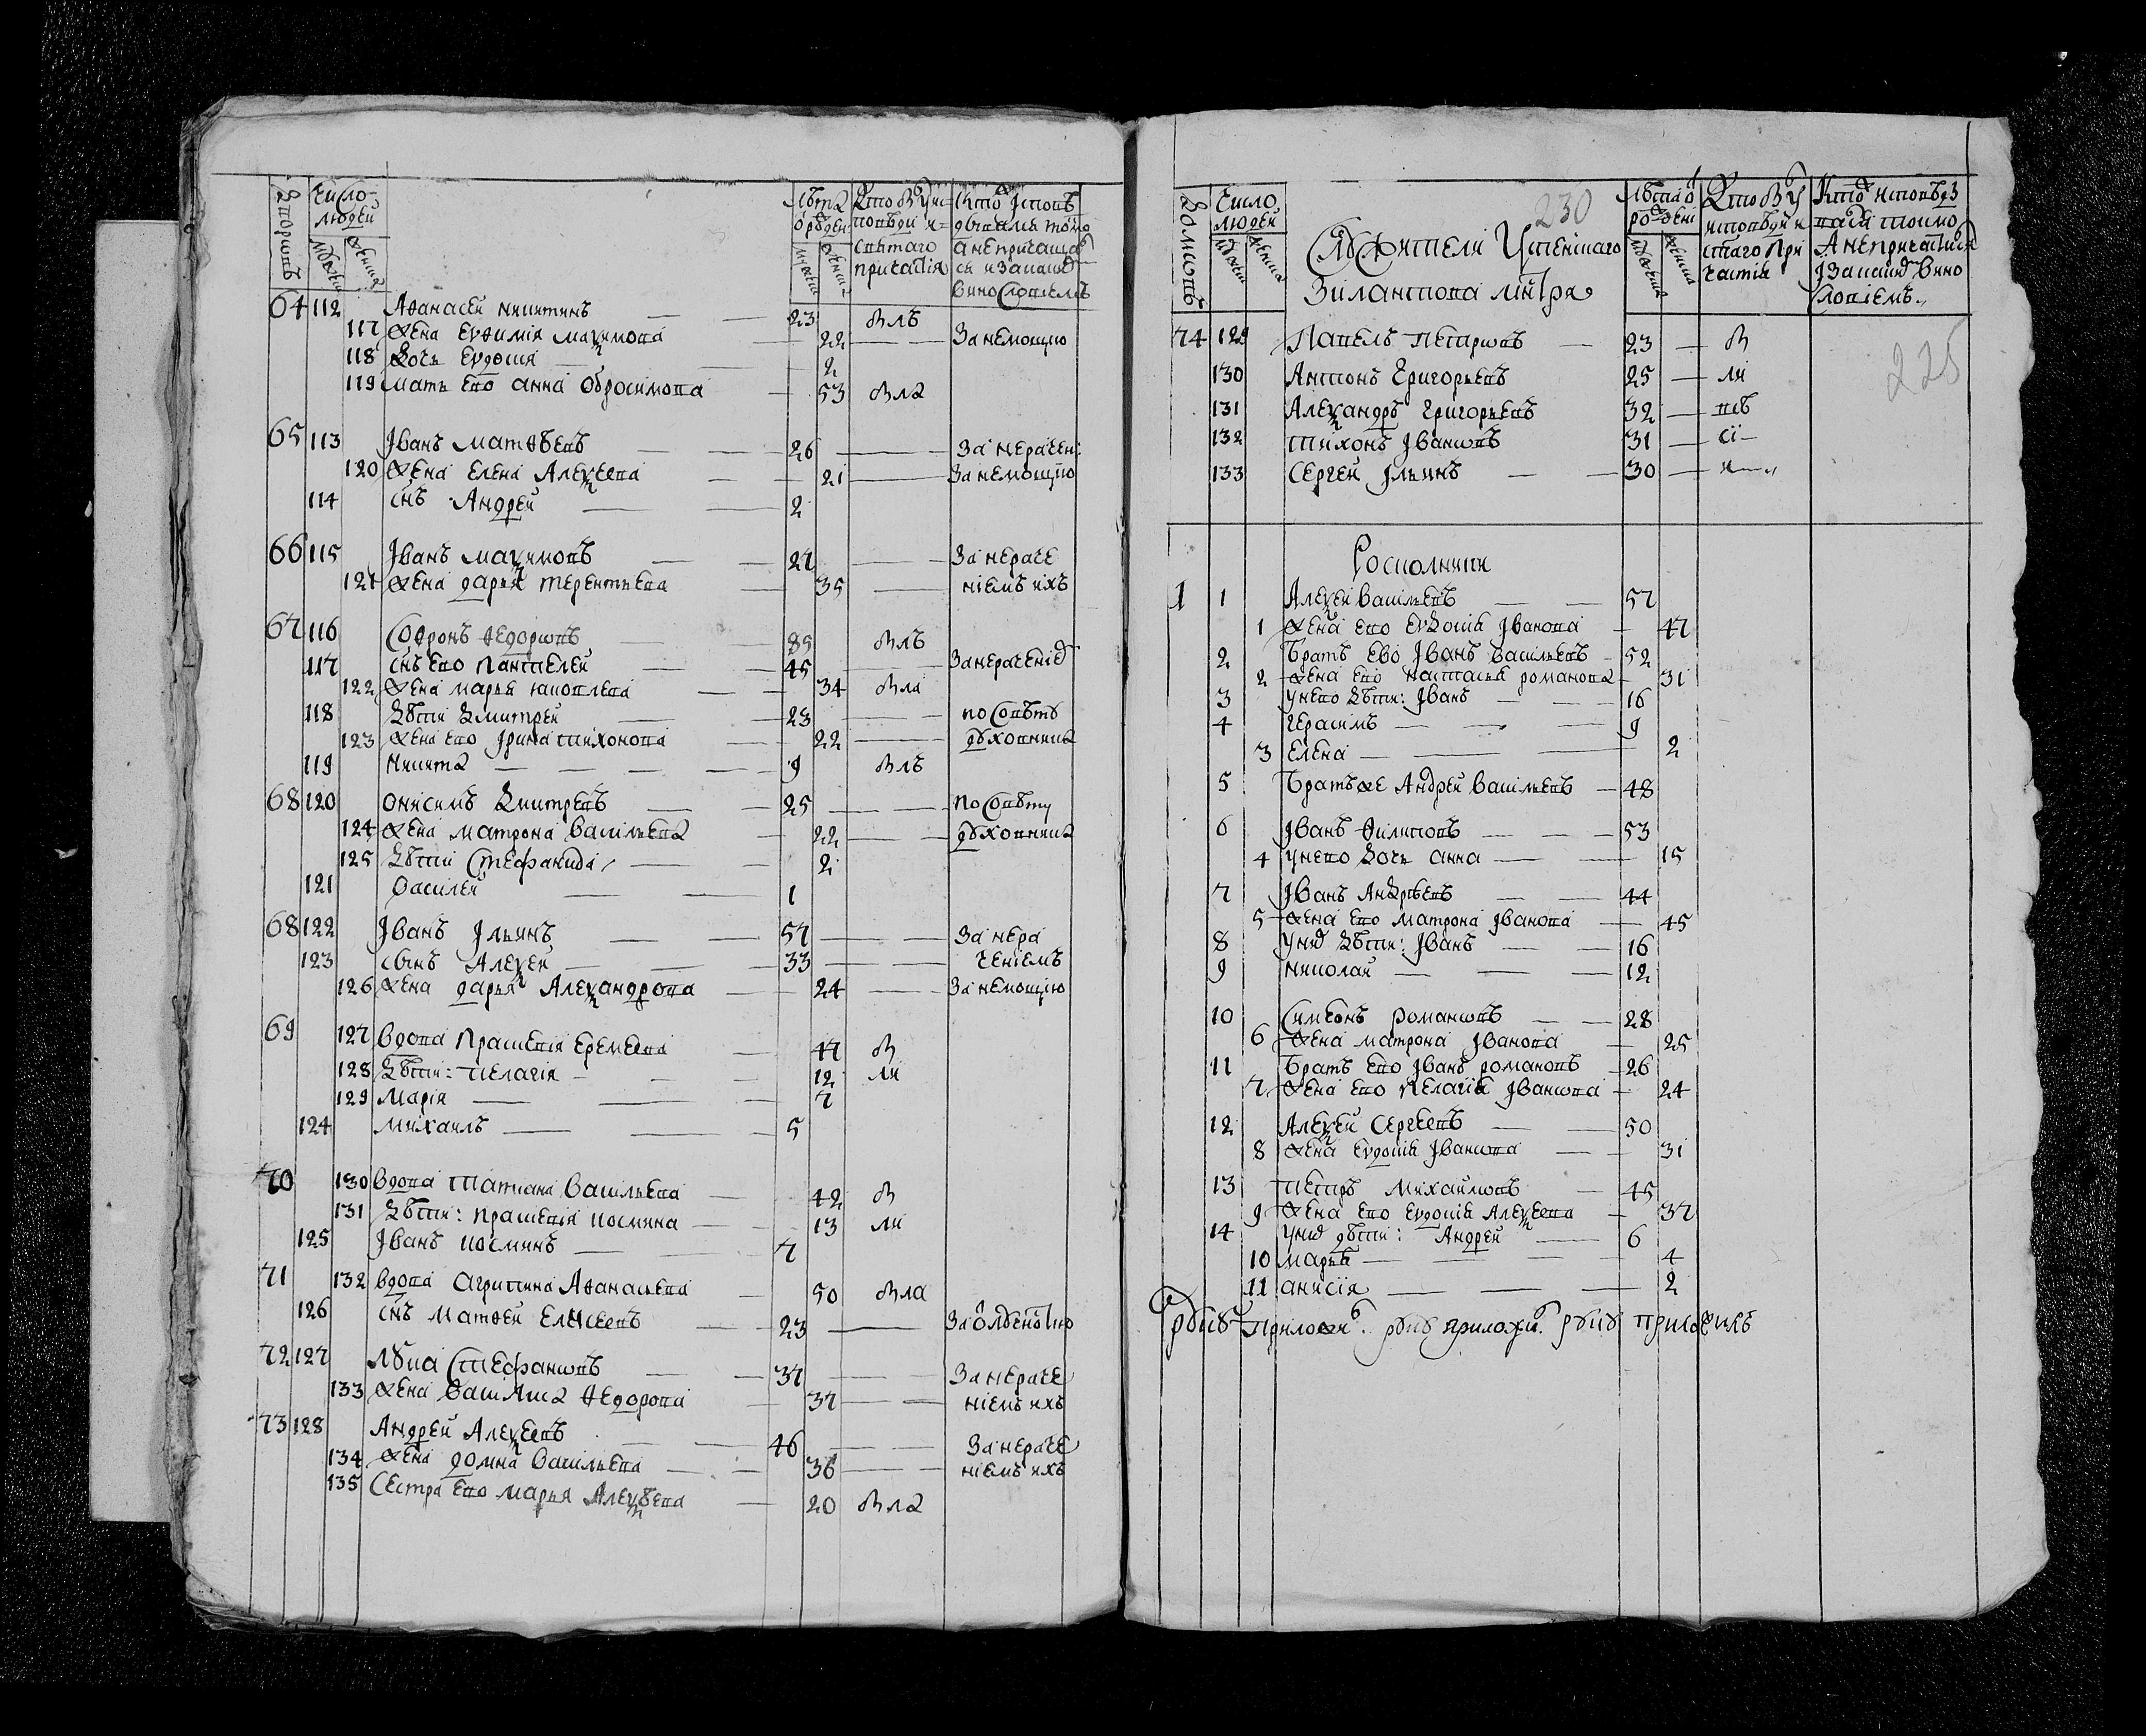 Дворовъ
Число людей
мужеска
женска
Лѣта от рожден
мужеска
женска
Кто были у исповѣди и святаго причастія
Кто исповѣдывался токмо а не причащался и за каким винословіемъ
64 112 Аѳанасей Никитинъ 23 былъ
117 Жена Еуѳимія Маѯимова 22 За немощию
118 Дочь Евдокия 2
119 Мать ево Анна Обросимова 53 была
65 113 Іванъ Матѳѣевъ 26 За нерачени:
120 Жена Елена Алеѯеева 21 За немощию
114 Снъ Андрей 2
66 115 Іванъ Маѯимовъ 27 За нераче
121 Жена Дарья Терентьева 35 ніемъ ихъ
67 116 Соѳронъ Ѳедоровъ 89 былъ
117 Снъ ево Пантелей 45 За нерачение
122 Жена Марья Яковлева 34 была
118 Дѣти Дмитрей 23 по совѣту
123 Жена ево Ірина Тихонова 22 духовника
119 Никита 9 былъ
68 120 Онисимъ Дмитревъ 25 По совѣту
124 Жена Матрона Васильева 22 духовника
125 Дѣти Стефанида 2
121 Василей 1
68 122 Іванъ Ільинъ 57 За нера
123 Сынъ Алеѯей 33 ченіемъ
126 Жена Дарья Алеѯандрова 24 За немощию
69 127 Вдова Прасковія Еремеева 47 бы
128 Дѣти: Пелагія 12 ли
129 Марія 7
124 Михаилъ 5
70 130 Вдова Татиана Васильева 42 бы
131 Дѣти: Прасковія Космина 13 ли
125 Іванъ Косминъ 7
71 132 Вдова Агрипина Аѳанасьева 50 была
126 Снъ Матѳей Елисеевъ 23 За отлучностию
72 127 Лука Стефановъ 37 За нераче
133 Жена Василиса Ѳедорова 37 ніемъ ихъ
73 128 Андрей Алеѯеевъ 46 За нераче
134 Жена Домна Васильева 36 ніемъ ихъ
135 Сестра ево Марья Алеѯѣева 20 была
230
Домовъ
Число людей
мужеска
женска
Служители Успенскаго Зилантова мнтря
Лѣта от рождени
мужеска
женска
Кто были у исповѣди и святаго причастія
Кто исповѣдывался токмо а не причастился и за каким винословіемъ
225
74 129 Павелъ Петровъ 23 бы
130 Антонъ Григорьевъ 25 ли
131 Алеѯандръ Григорьевъ 32 всѣ
132 Тихонъ Івановъ 31
133 Сергей Ільинъ 30
Росколники
1 1 Алеѯей Васильевъ 57
1 Жена ево Евдокія Іванова 47
2 Братъ ево Іванъ Васильевъ 52
2 Жена ево Настасья Романова 31
3 У нево дѣти: Іванъ 16
4 Герасимъ 9
3 Елена 2
5 Братъ же Андрей Васильевъ 48
6 Іванъ Ѳилиповъ 53
4 У нево дочь Анна 15
7 Іванъ Андрѣевъ 44
5 Жена ево Матрона Іванова 45
8 У них дѣти: Іванъ 16
9 Николай 12
10 Симеонъ Романовъ 28
6 Жена Матрона Іванова 25
11 Братъ ево Іванъ Романовъ 26
7 Жена ево Пелагія Іванова 24
12 Алеѯей Сергеевъ 50
8 Жена Евдокія Іванова 31
13 Петръ Михайловъ 45
9 Жена ево Евдокія Алеѯеева 37
14 У них дѣти: Андрей 6
10 Марья 4
11 Анисія 2